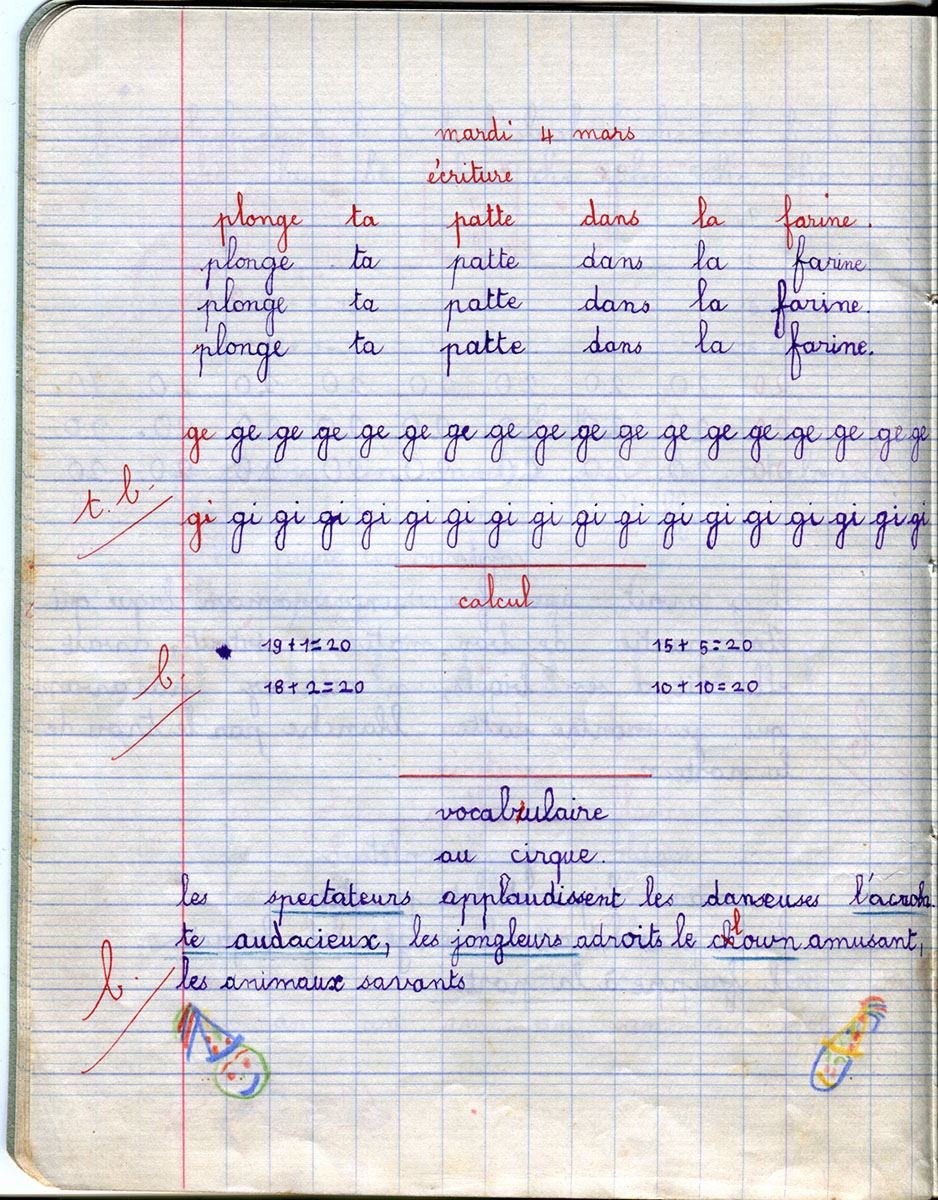 mardi 4 mars
écriture
plonge ta patte dans la farine.
plonge ta patte dans la farine.
plonge ta patte dans la farine.
plonge ta patte dans la farine.
ge ge ge ge ge ge ge ge ge ge ge ge ge ge ge ge ge ge
t.b.
gi gi gi gi gi gi gi gi gi gi gi gi gi gi gi gi gi gi
calcul
19+1=20 15+5=20
b.
18+2=20 10+10=20
vocabulaire
au cirque.
les spectateurs applaudissent les danseuses l'acroba
te audacieux, les jongleurs adroits le clown amusant,
b.
les animaux savants